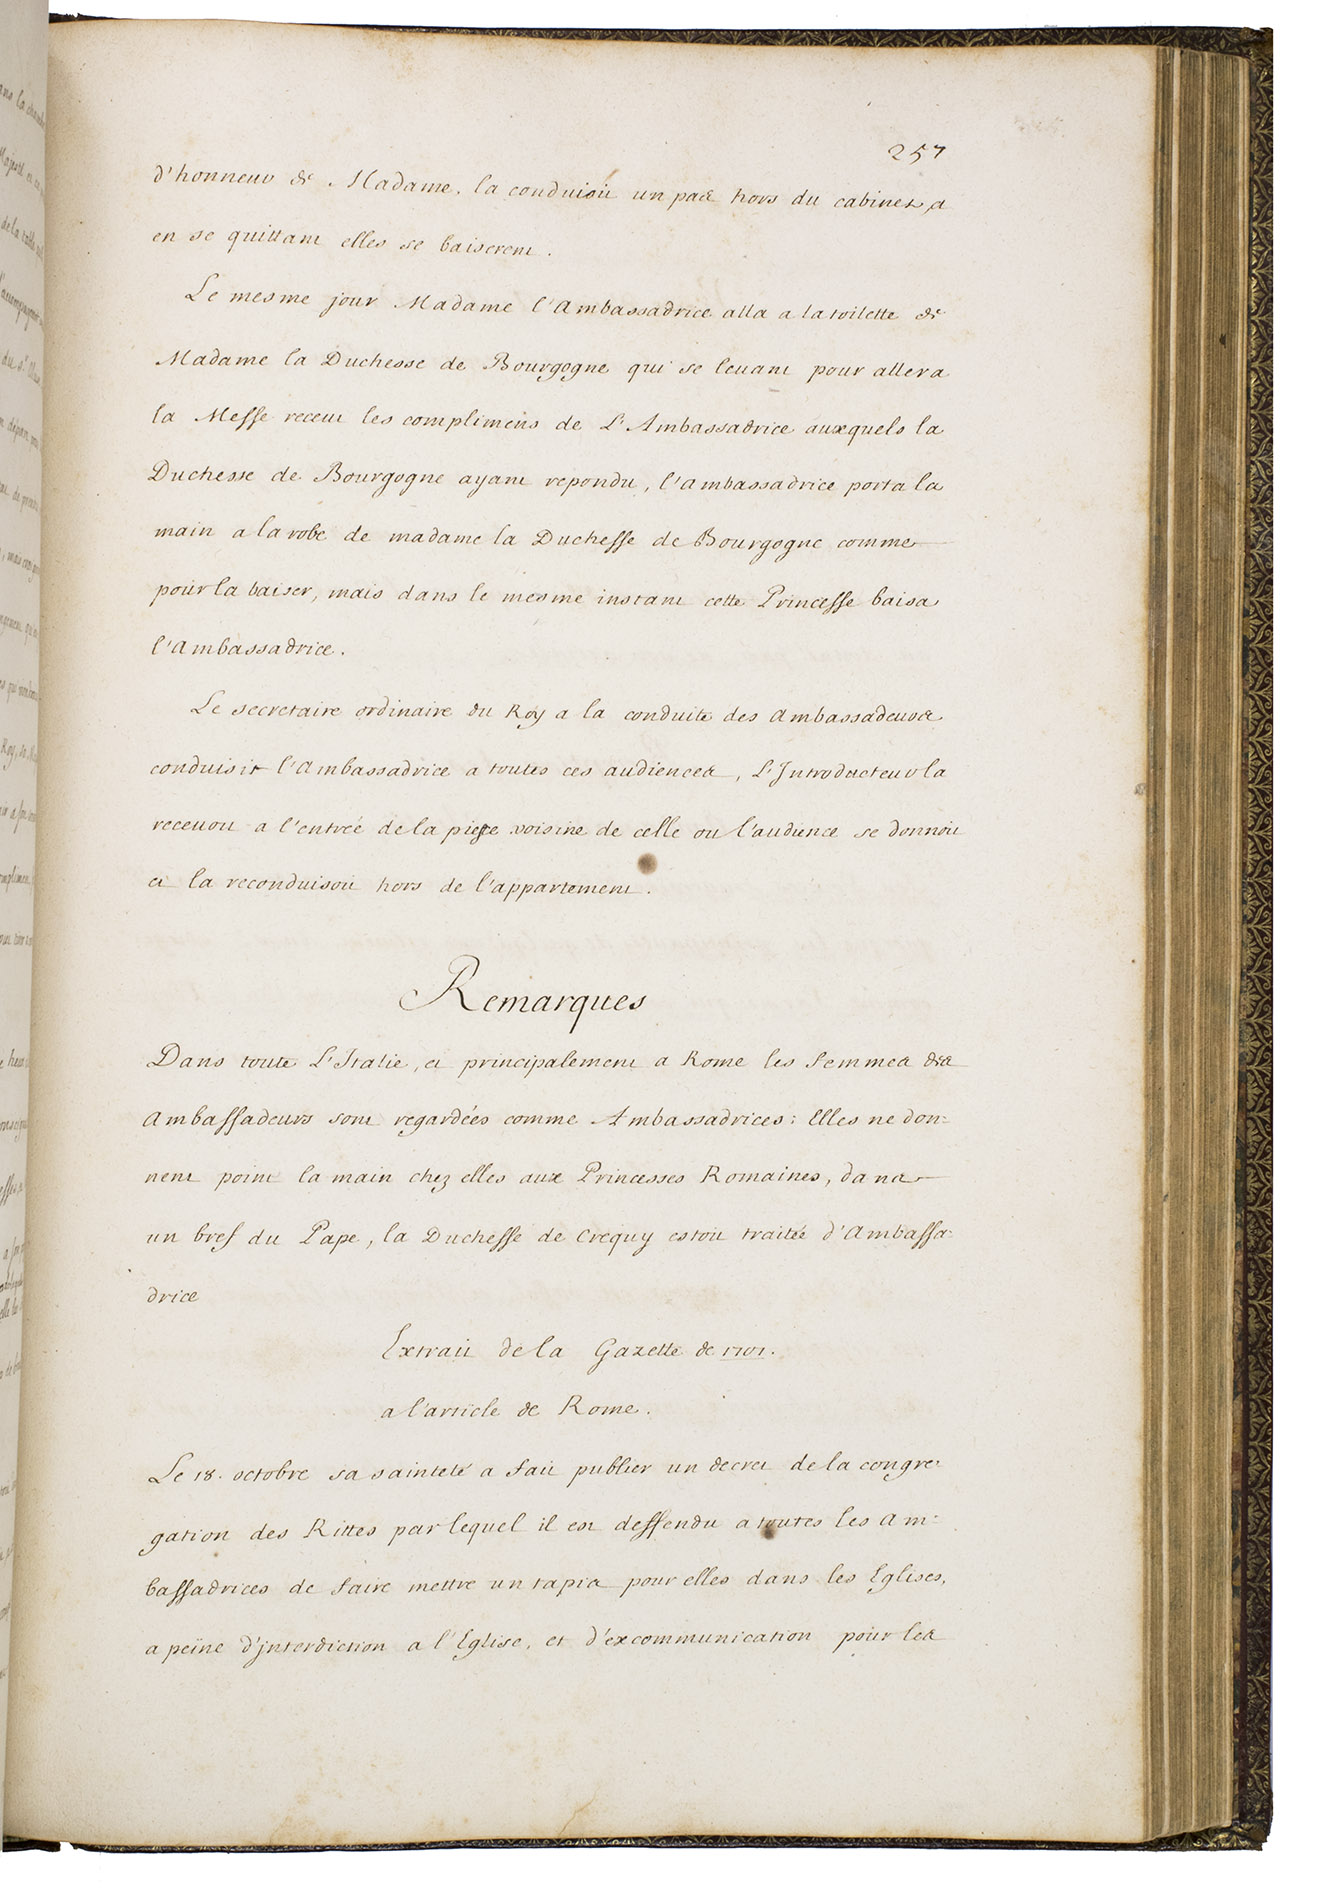 257
d'honneur de Madame. la conduisit un pas hors du cabinet, et
en se quittant elles se baiserent.
Le mesme jour Madame l'Ambassadrice alla a la toilette de
Madame la Duchesse de Bourgogne qui se levant pour aller a
la Messe receut les complimens de L'Ambassadrice auxquels la
Duchesse de Bourgogne ayant repondu, l'ambassadrice porta la
main a la robe de madame la Duchesse de Bourgogne comme
pour la baiser, mais dans le mesme instant cette Princesse baisa
l'Ambassadrice.
Le secretaire ordinaire du Roy a la conduite des Ambassadeurs
conduisit l'Ambassadrice a toutes ces audiences, L'Introducteur la
recevoit a l'entrée de la piece voisine de celle ou l'audience se donnoit
et la reconduisoit hors de l'appartement.
Remarques
Dans toute L'Italie, et principalement a Rome les femmes des
Ambassadeurs sont regardées comme Ambassadrices: Elles ne don=
nent point la main chez elles aux Princesses Romaines, dans
un bref du Pape, la Duchesse de Crequy estoit traitée d'Ambassa=
drice
Extrait de la Gazette de 1701.
a l'article de Rome.
Le 18. octobre sa sainteté a fait publier un decret de la congre=
gation des Rittes par lequel il est deffendu a toutes les Am=
bassadrices de faire mettre un tapis pour elles dans les Eglises,
a peine d'jnterdiction a l'Eglise, et d'excommunication pour les